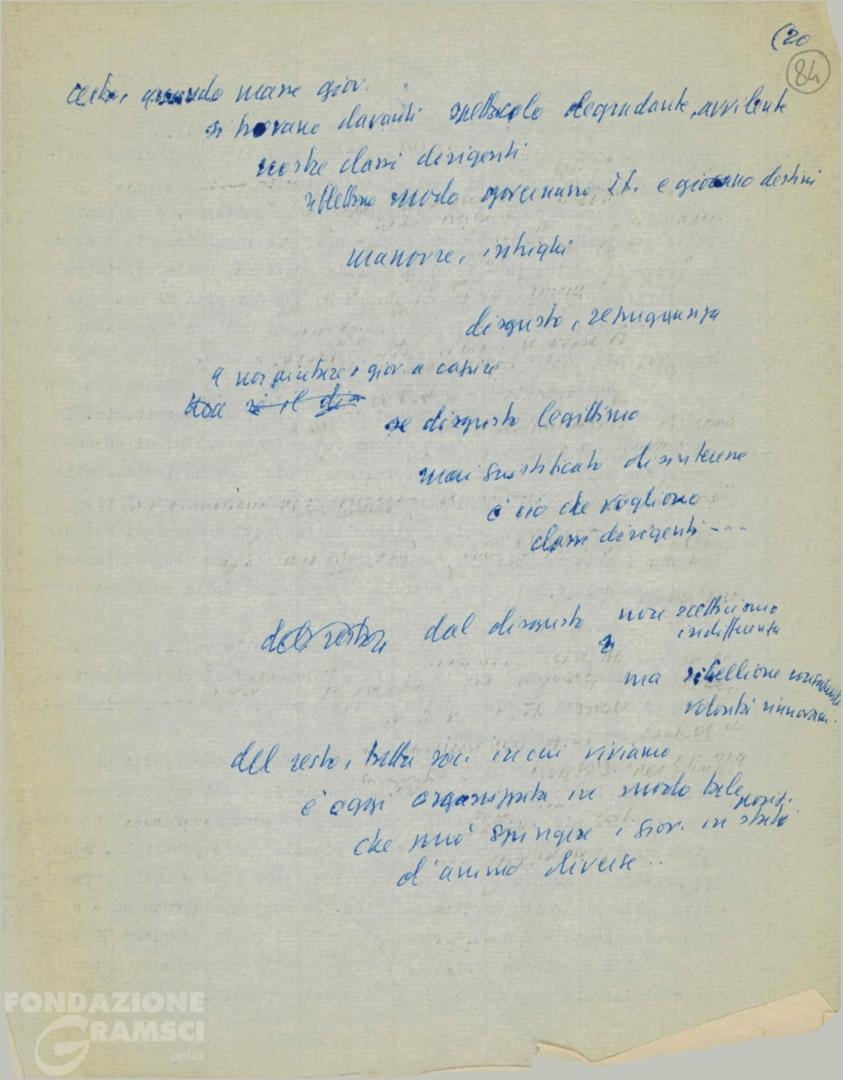 (20
84
certo, quando masse giov.
si trovano davanti spettacolo degradante, avvilente
nostre classi dirigenti
riflettono modo governano It. e giocano destini
manovre, intrighi
disgusto, repugnanza
a noi aiutare i giov. a capire
se disgusto legittimo
mai giustificato disinteresse
è ciò che vogliono
classi dirigenti - - -
del resto, dal disgusto non scetticismo
indifferenza
ma ribellione
volontà rinnovam.
del resto, tutta soc. in cui viviamo
è oggi organizzata in modo tale
che può spingere i giov. in stati
d'animo diverse...
FONDAZIONE
GRAMSCI
onlus